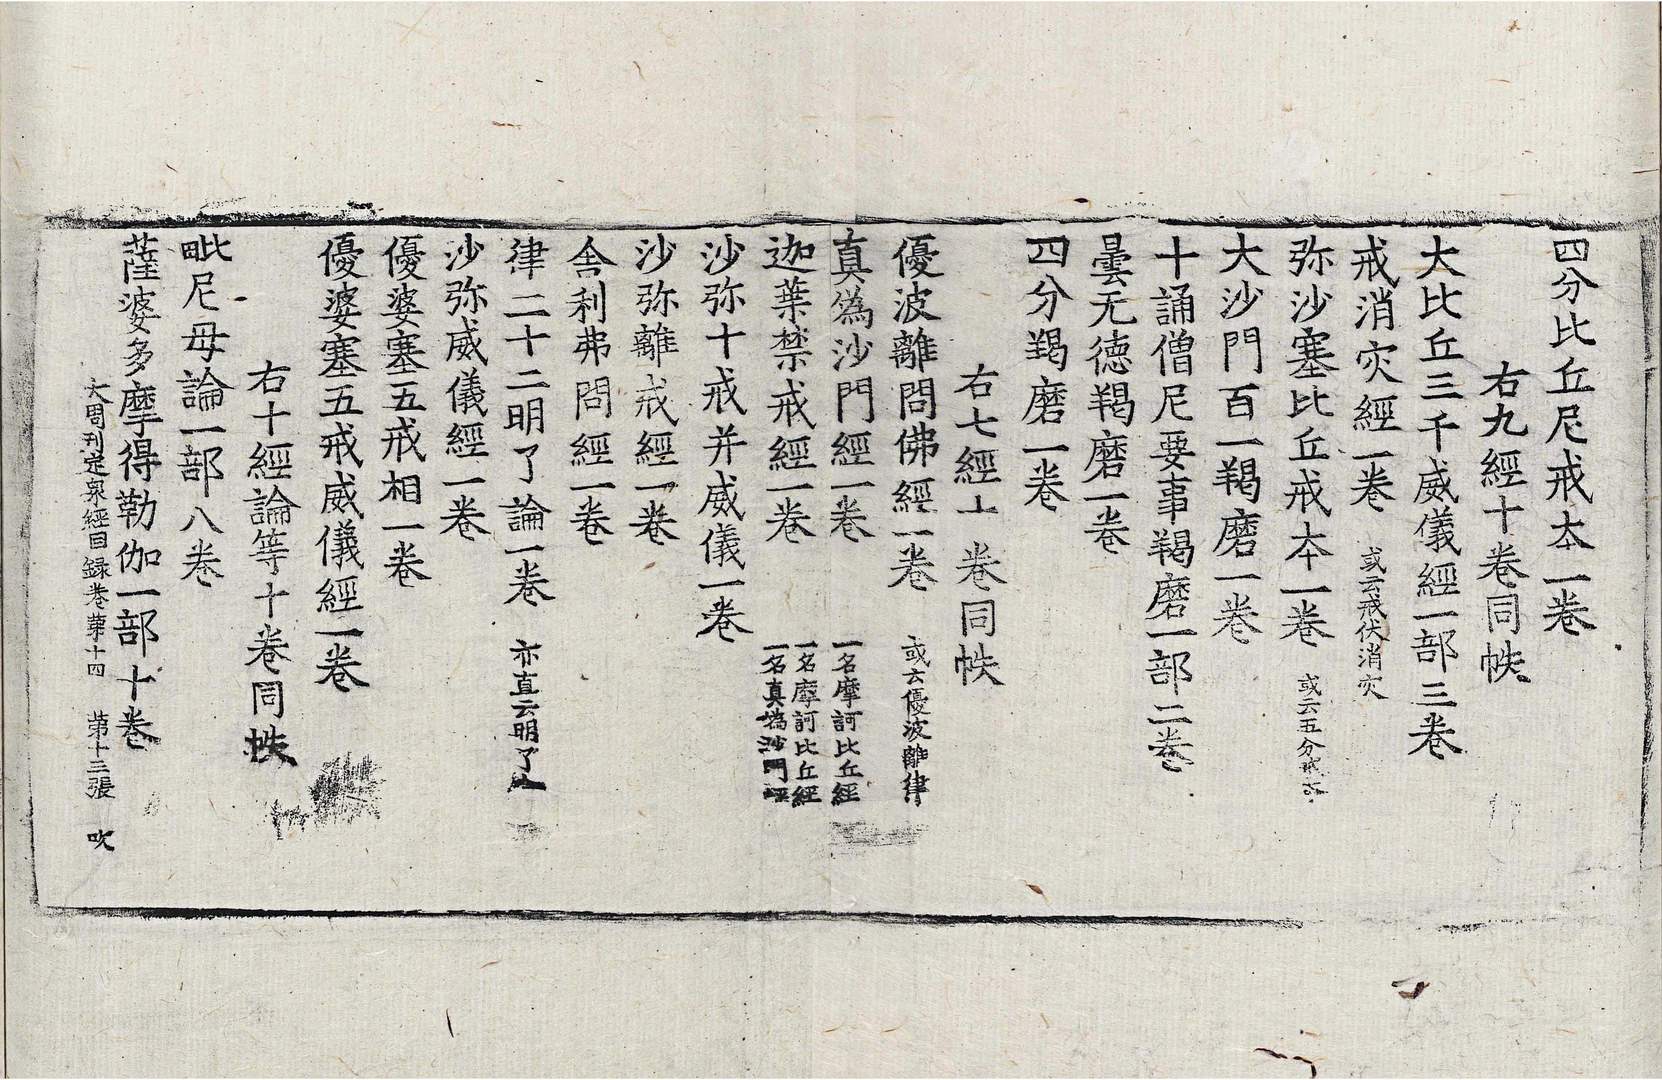 四分比丘尼戒本一卷
右九經十卷同帙
大比丘三千威儀經一部三卷
戒消灾經一卷 或云戒伏消灾
弥沙塞比丘戒本一卷 或云五分戒本
大沙門百一羯磨一卷
十誦僧尼要事羯磨一部二卷
曇无德羯磨一卷
四分羯磨一卷
右七經十卷同帙
優波離問佛經一卷 或云優波離律
真偽沙門經一卷 一名摩訶比丘經
迦葉禁戒經一卷 一名摩訶比丘經
一名真偽沙門經
沙弥十戒并威儀一卷
沙弥離戒經一卷
舍利弗問經一卷
律二十二明了論一卷 亦直云明了
沙弥威儀經一卷
優婆塞五戒相一卷
優婆塞五戒威儀經一卷
右十經論等十卷同帙
毗尼母論一部八卷
薩婆多摩得勒伽一部十卷
大周刊定衆經目録卷苐十四 第十三張 吹